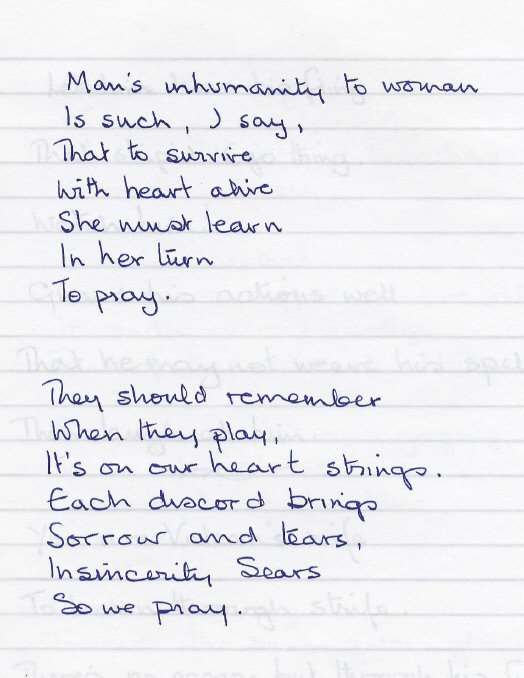 Man's inhumanity to woman
Is such, I say,
That to survive
With heart alive
She must learn
In her turn
To pray.
They should remember
When they play,
It's on our heart strings.
Each discord brings
Sorrow and tears,
Insincerity Sears
So we pray.